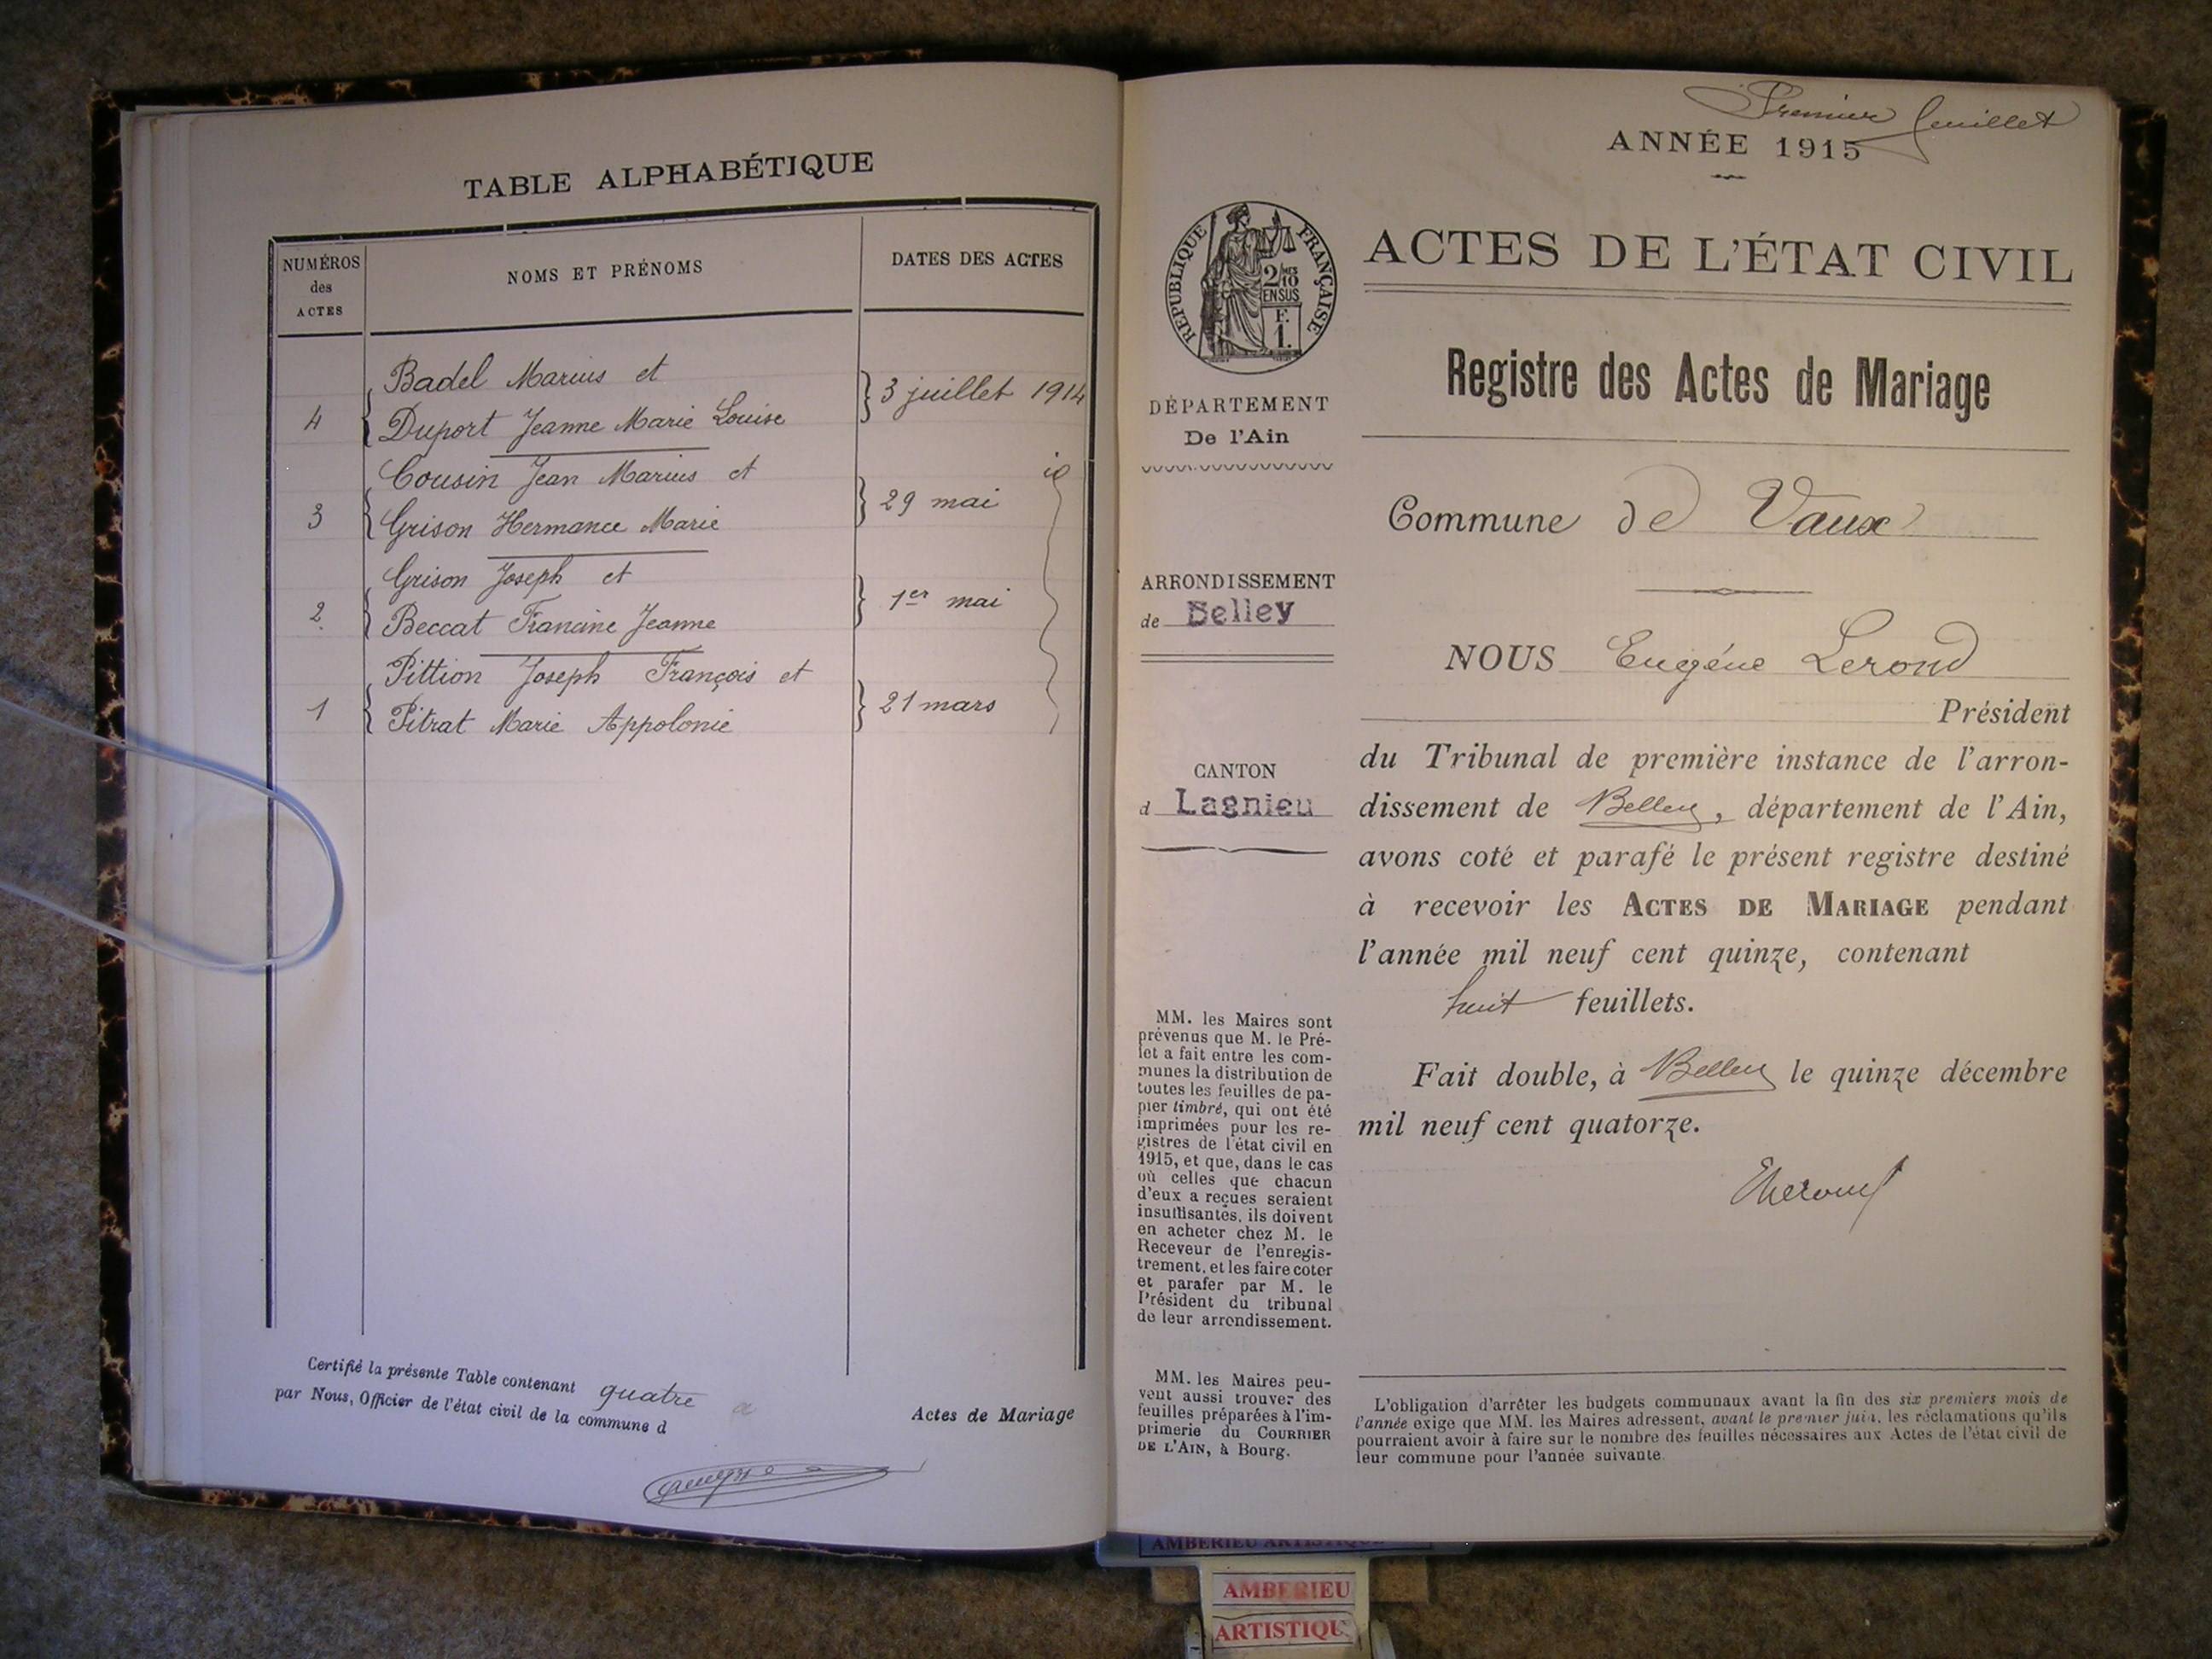 TABLE ALPHABÉTIQUE
NUMÉROS
des
ACTES
NOMS ET PRÉNOMS
DATES DES ACTES
Badel Marius et
4 Duport Jeanne Marie Louise 3 juillet 1914
Cousin Jean Marius et
3 Grison Hermance Marie 29 mai id
Grison Joseph et
2 Beccat Francine Jeanne 1er mai
Pittion Joseph François et
1 Pitrat Marie Appolonie 21 mars
Certifié la présente Table contenant quatre Actes de Mariage
par Nous, Officier de l'état civil de la commune d
Premier feuillet
ANNÉE 1915
RÉPUBLIQUE FRANÇAISE
2/10
EN SUS
F.
1.
DÉPARTEMENT
De l'Ain
ARRONDISSEMENT
de Belley
CANTON
d Lagnieu
MM. les Maires sont
prévenus que M. le Pré-
fet a fait entre les com-
munes la distribution de
toutes les feuilles de pa-
pier timbré, qui ont été
imprimées pour les re-
gistres de l'état civil en
1915, et que, dans le cas
où celles que chacun
d'eux a reçues seraient
insuffisantes, ils doivent
en acheter chez M. le
Receveur de l'enregis-
trement, et les faire coter
et parafer par M. le
Président du tribunal
de leur arrondissement.
MM. les Maires peu-
vent aussi trouver des
feuilles préparées à l'im-
primerie du COURRIER
DE L'AIN, à Bourg.
ACTES DE L'ÉTAT CIVIL
Registre des Actes de Mariage
Commune de Vaux
NOUS Eugéne Lerond
Président
du Tribunal de première instance de l'arron-
dissement de Belley, département de l'Ain,
avons coté et parafé le présent registre destiné
à recevoir les ACTES DE MARIAGE pendant
l'année mil neuf cent quinze, contenant
huit feuillets.
Fait double, à Belley le quinze décembre
mil neuf cent quatorze.
L'obligation d'arrêter les budgets communaux avant la fin des six premiers mois de
l'année exige que MM. les Maires adressent, avant le premier juin, les réclamations qu'ils
pourraient avoir à faire sur le nombre des feuilles nécessaires aux Actes de l'état civil de
leur commune pour l'année suivante.
AMBERIEU ARTISTIQUE
AMBERIEU
ARTISTIQU